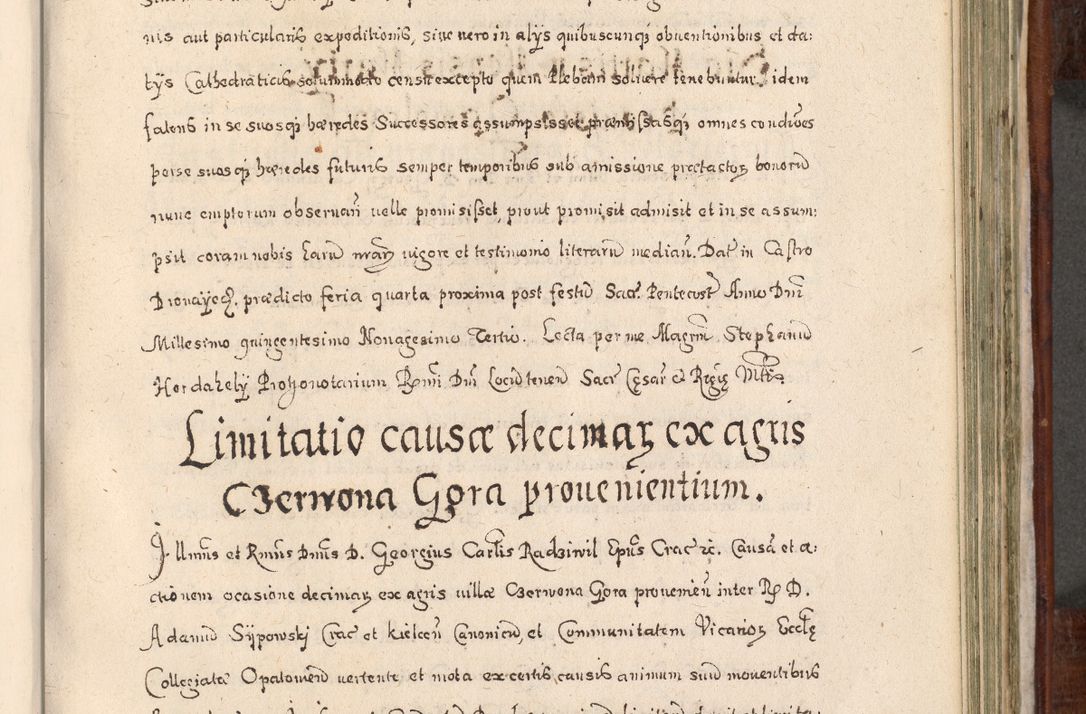 nis aut particularis expeditionis, siue uero in alÿs quibuscunqꝫ obuentionibus et da:
tÿs Cathedraticis solummodo censu excepto quem Plebani soluere tenebuntur, idem
falens in se suosqꝫ hæredes Successores assumpsisset præmissasqꝫ omnes condiões
per se suosqꝫ hæredes futuris semper temporibus sub amissione prætactoꝝ bonorū
nunc emptorum obseruań uelle promisisset, prout promisit admisit et in se assum:
psit coram nobis harū nr̃aꝝ uigore et testimonio literarū median̄. Dať in Castro
præedicto feria quarta proxima post festū Sacr̃. Pentecosť Anno Dn̄i
Millesimo quingentesimo Nonagesimo Tertio. Lecta per me Magr̄m Stephanū
Hordahely Protonotarium Rm̄i Dn̄i Locūtenen̄ Sacr̃ Cęsar̃ & Regię Mťťis
Limitatio causæ decimaꝝ ex agris
Czerwona Gora prouenientium.
Illmūs et Rmūs Dmūs D. Georgius Carlis Radziwil Epūs Crac̃ ꝛc. Causā et a:
ctionem ocasione decimaꝝ ex agris uillæ Czerwona Gora prouenien̄ inter R. D.
Adamū Sÿpowskj Crac̃ et kielceń Canonicū, et Communitatem Vicarioꝝ Ecclę
Collegiatæ Opatouien̄ uertente et mota ex certis causis animum suū mouentibus